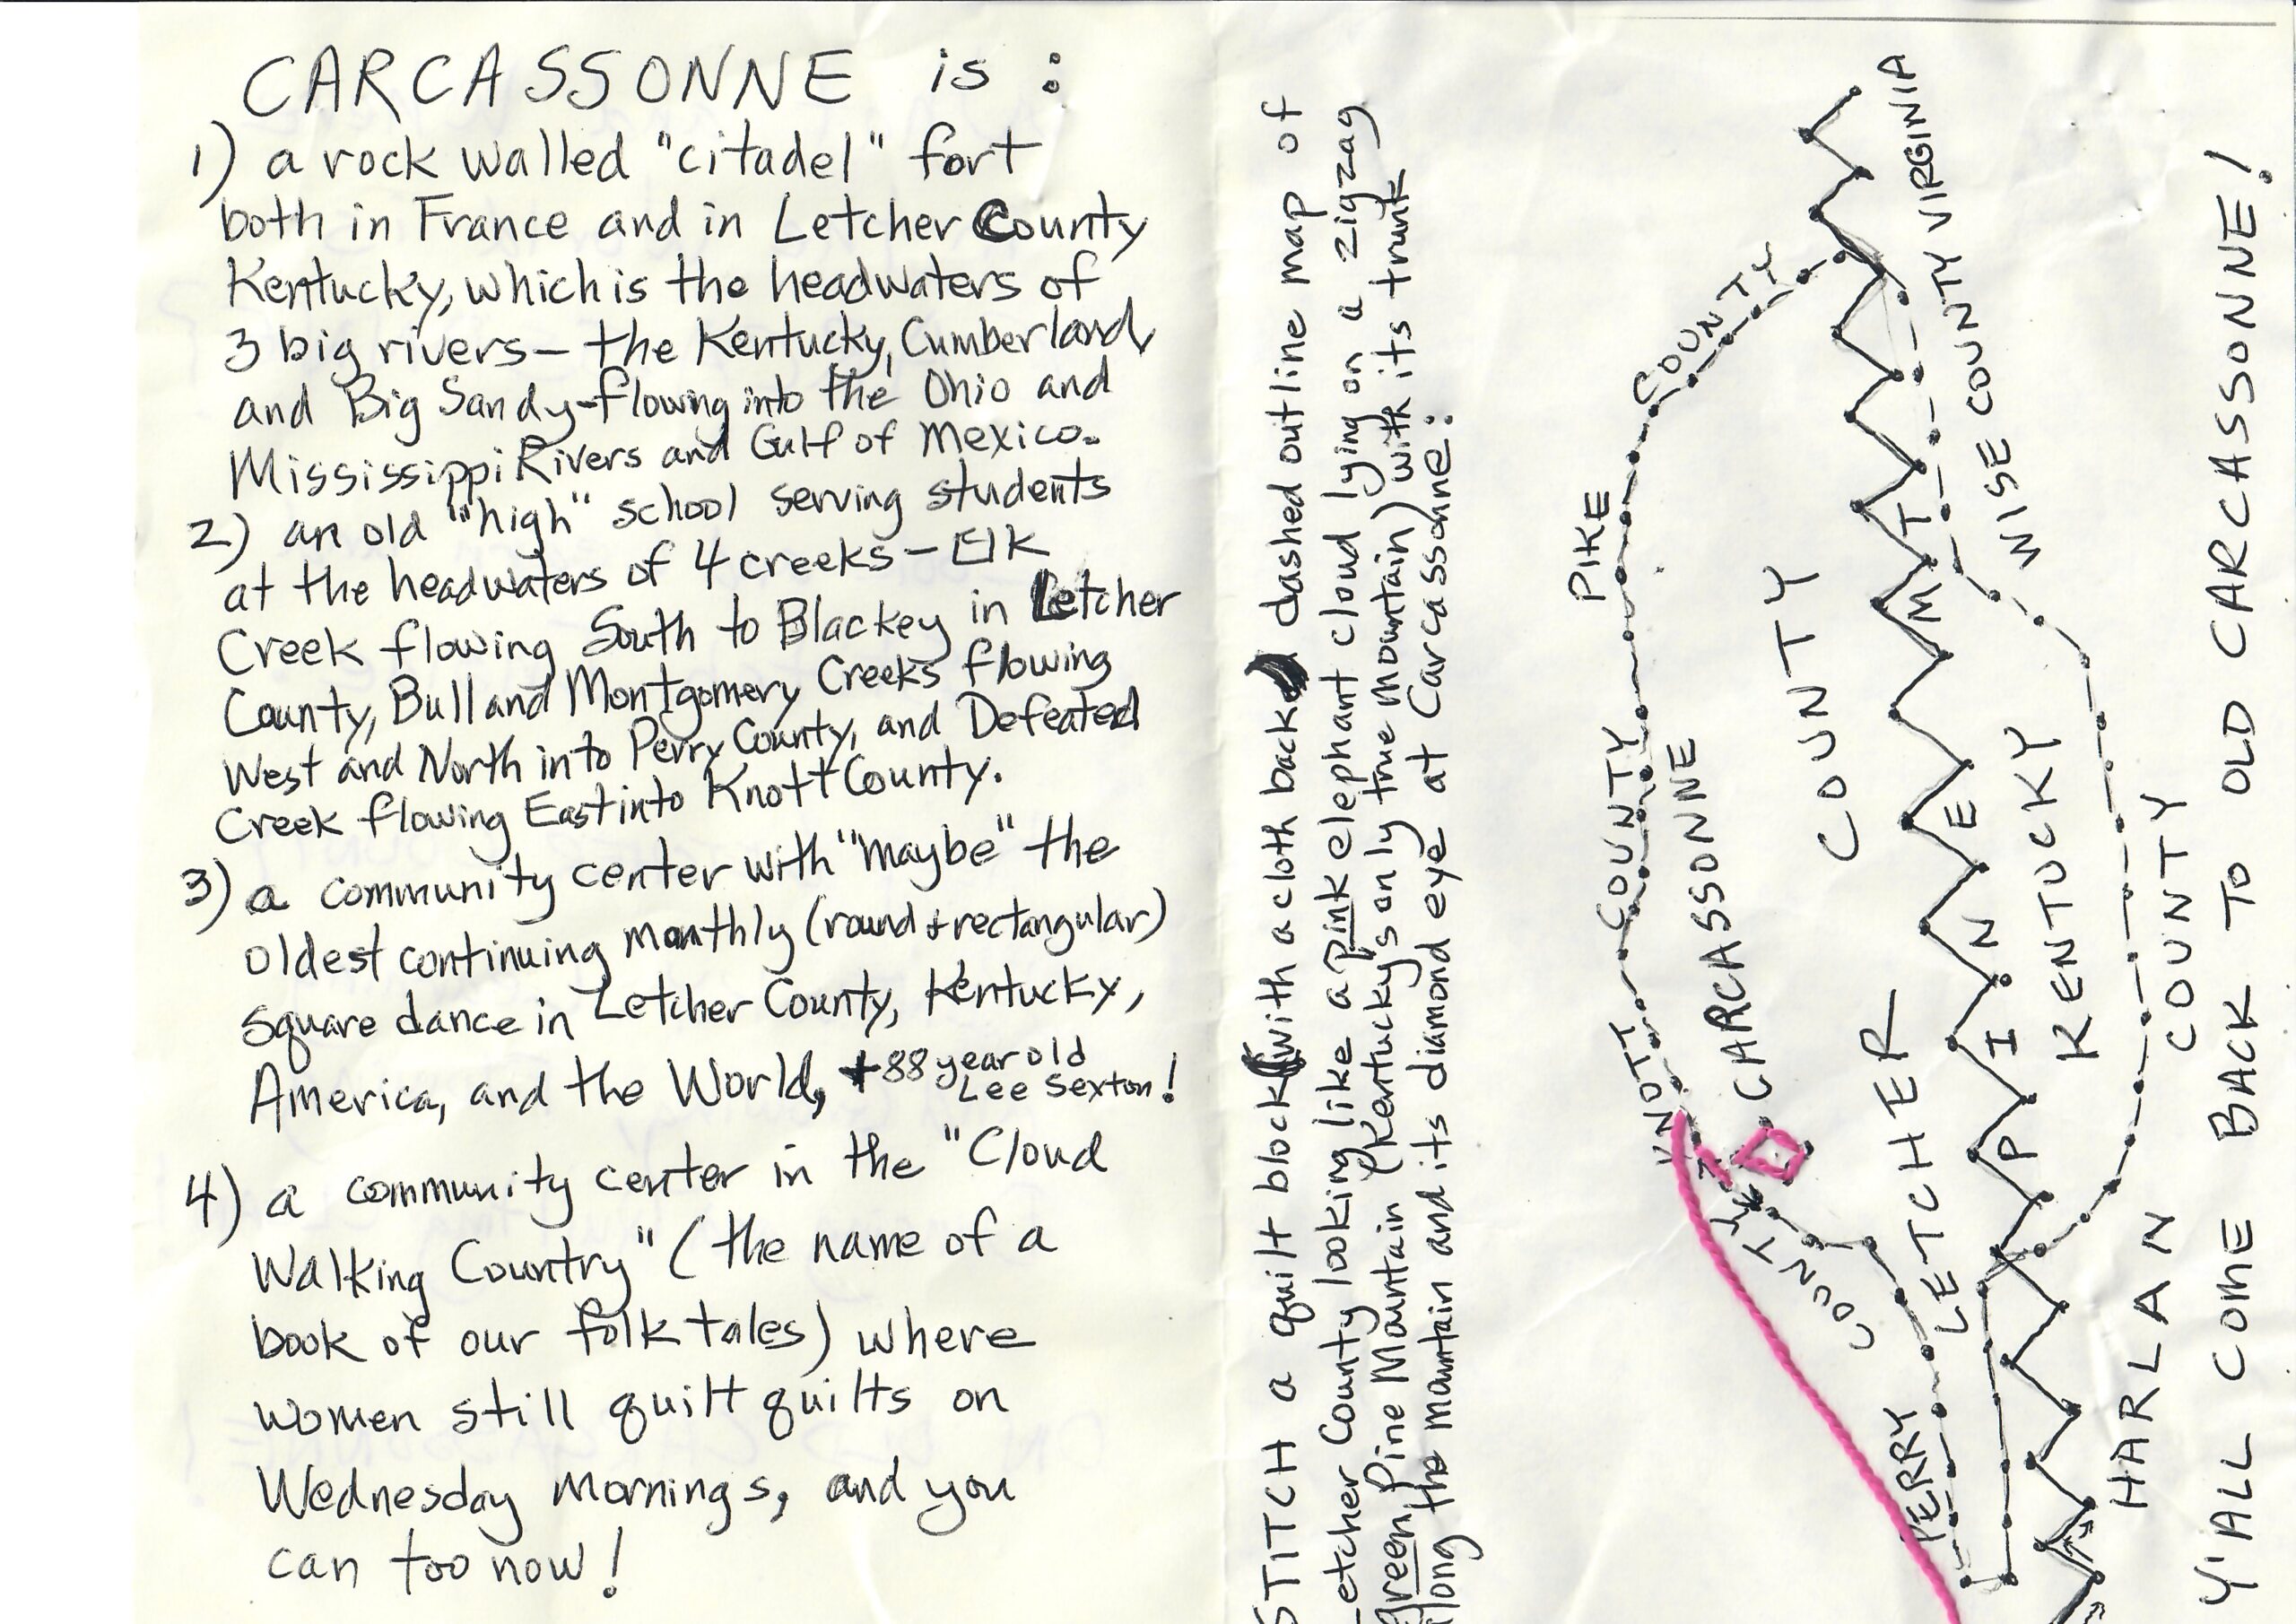 CARCASSONNE is :
1) a rock walled "citadel" fort
both in France and in Letcher County
Kentucky, which is the headwaters of
3 big rivers - the Kentucky, Cumberland,
and Big Sandy - flowing into the Ohio and
Mississippi Rivers and Gulf of Mexico.
2) an old "high" school serving students
at the headwaters of 4 creeks - Elk
Creek flowing South to Blackey in Letcher
County, Bull and Montgomery Creeks flowing
West and North into Perry County, and Defeated
Creek flowing East into Knott County.
3) a community center with "maybe" the
oldest continuing monthly (round + rectangular)
square dance in Letcher County, Kentucky,
America, and the World, + 88 year old
Lee Sexton!
4) a community center in the "Cloud
Walking Country" (the name of a
book of our folk tales) where
women still quilt quilts on
Wednesday mornings, and you
can too now!
STITCH a quilt block (with a cloth back) dashed outline map of
Letcher County looking like a pink elephant cloud lying on a zigzag
green Pine Mountain (Kentucky's only true mountain) with its trunk
along the mountain and its diamond eye at Carcassonne:
KNOTT COUNTY
PIKE COUNTY
CARCASSONNE
PERRY COUNTY
LETCHER COUNTY
PINE MT.
KENTUCKY
WISE COUNTY VIRGINIA
HARLAN COUNTY
Y'ALL COME BACK TO OLD CARCASSONNE!